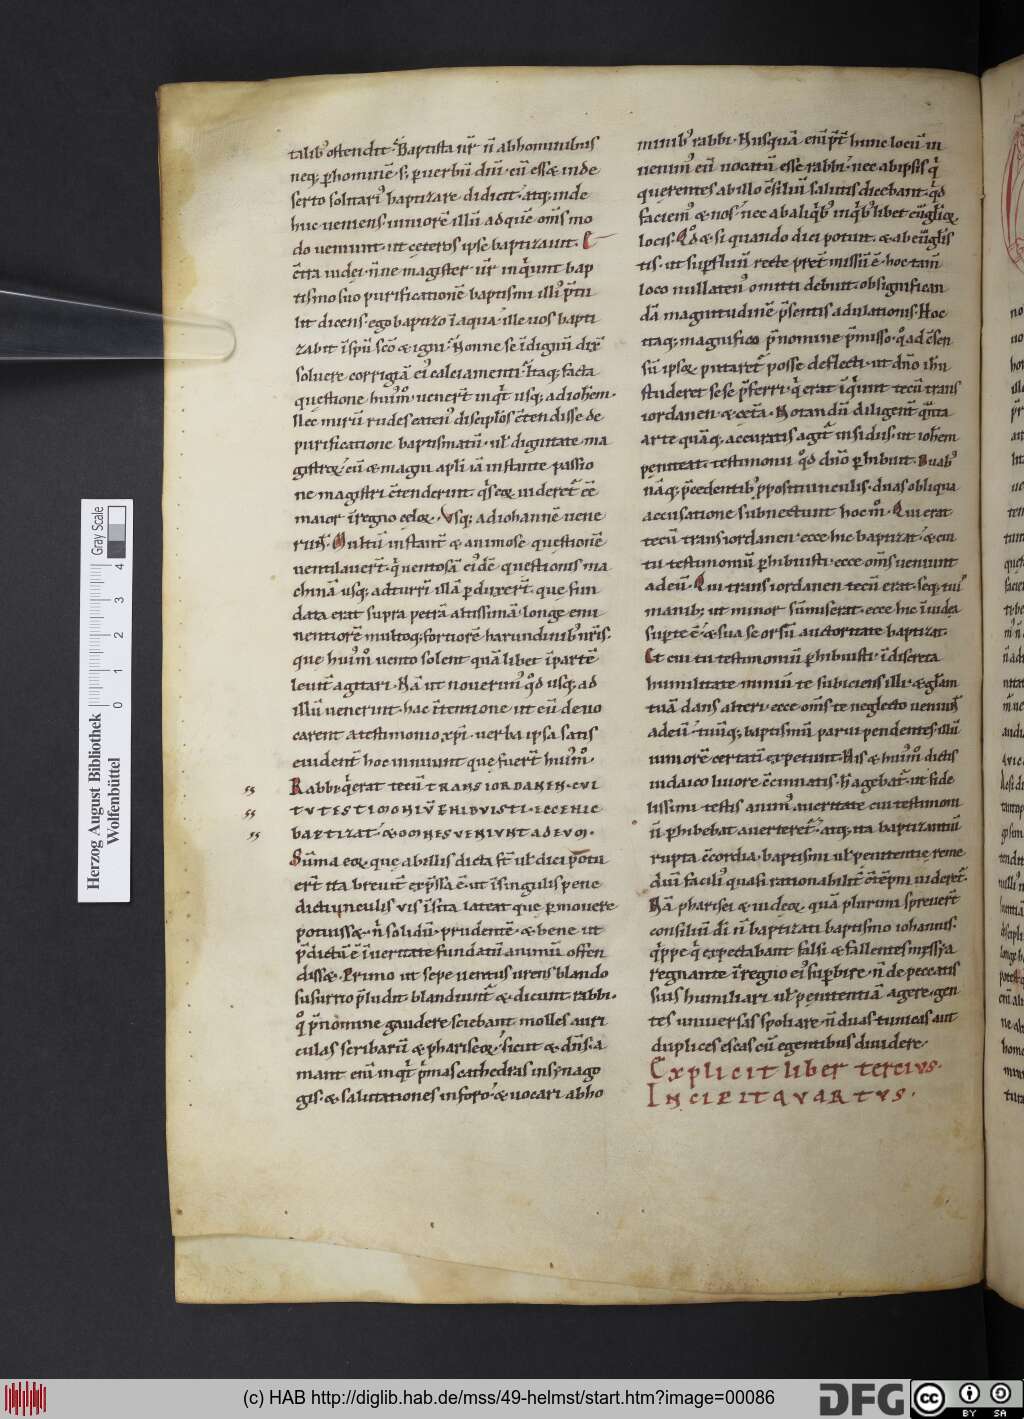 talib᷒ ostendit. Baptista ur̄ n̄ abhominibus
neq; ꝑhominē. s; ꝑuerbū dn̄i. cū essæ inde
serto solitari᷒ baptizare didicit. atq; inde
huc ueniens. iuniorē illū adquē om̄s mo
do ueniunt. ut cęteros ipse baptizauit.
c̄tra iudei. n̄ne magister ur̄ inqͥunt bap
tismo suo purificationē baptismi illi᷒ p̄tu
lit dicens. ego baptizo īaqua. ille uos bapti
zabit īsp̄u sc̄o & igni. Nonne se īdignū dix̄
soluere corrigiā ei᷒ calciamenti. Itaq; facta
questione hui᷒mͦ. uener̄t inqͥt usq; adioh̄em.
Nec mirū rudes eaten᷒ discipl̄os c̄tendisse de
purificatione baptismatū. ul̄ dignitate ma
gistroꝝ. cū & magni apl̄i iā instante passio
ne magistri c̄tenderunt. qͥs eoꝝ uideret᷑ c̄e
maior īregno celoꝝ. Vsq; adiohannē uene
rūt. Multū instant᷑ & animose questionē
uentilauer̄t. qͥ uentosā ei᷒dē questionis ma
chinā usq; adturrī illā ꝑduxer̄t. que fun
data erat supra petrā altissimā. longe emi
nentiorē multoq; fortiorē harundinib᷒ nr̄is.
que hui᷒mͦ uento solent quālibet īpartē
leuit᷑ agitari. Nā ut nouerim᷒ qͦd usq; ad
illū uenerunt. hac ītentione ut eū deuo
carent atestimonio xp̄i. uerba ipsa satis
euident᷑ hoc innuunt que fuer̄t hui᷒mͦ.
Rabbi qͥ erat tecū TRANS IORDANEN. CVI
TV TESTIMONIV̄ PHIBVISTI. ECCE HIC
BAPTIZAT. & OMNES VENIVNT AD EVM.
Sūma eoꝝ que abillis dicta st̄ ul̄ dici potu
er̄t ita breuit᷑ exp̄ssa ē. ut ī singulis pene
dictiunculis uis īsita lateat que ꝑmouere
potuissæ. n̄ solidū. prudentē. & bene ut
p̄dictū ē īueritate fundatū animū offen
dissæ. Primo ut sepe uentus urens blando
susurro p̄ludit. blandiunt᷑ & dicunt rabbi.
qͦ p̄nomine gaudere sciebant molles auri
culas scribarū & phariseoꝝ. sicut & dn̄s. a
mant enī inqͥt p̄mas cathedras insynago
gis. & salutationes inforo. & uocari abho
minib᷒ rabbi. Nusquā enī p̄t̄ hunc locū in
uenim᷒ eū uocatū esse rabbi. nec abipsis qͥ
querentes abillo c̄siliū salutis dicebant. qͥd
faciem᷒ & nos. nec ab aliqͥb᷒ inqͥb᷒libet eūgl̄ioꝝ
locis. Qͦd & si quando dici potuit. & ab eūgl̄is
tis. ut suꝑfluū recte p̄t̄missū ē. hoc tam̄
loco nullaten᷒ omitti debuit. obsignifican
dā magnitudinē p̄sentis adulationis. Hoc
itaq; magnifico p̄nomine p̄misso. qͦ ad c̄sen
sū ipsoꝝ putaret᷑ posse deflecti. ut dn̄o ih̄u
studeret sese p̄ferri. qͥ erat īqͥunt tecū trans
iordanen. & cet̄a. Notandū diligent᷑ qͣnta
arte quāq; accuratis agit᷑ insidiis. ut ioh̄em
peniteat testimonii qͦd dn̄o ꝑhibuit. Duab᷒
nāq; p̄cedentib᷒ propositiunculis. duas obliqua
accusatione subnectunt hocmͦ. Qui erat
tecū transiordanen. ecce hic baptizat. & cui
tu testimoniū ꝑhibuisti. ecce om̄s ueniunt
adeū. Qui trans iordanen tecū erat. seq; tui᷒
manib; ut minor sūmiserat. ecce hic īiudea
supte ē. & sua seorsū auctoritate baptizat.
Et cui tu testimoniū ꝑhibuisti. īdiscreta
humilitate nimiū te subiciens illi. & gl̄am
tuā dans alteri. ecce om̄s te neglecto ueniūt
adeū. tuūq; baptismū paruipendentes. illū
iuniorē certati expetunt. His & hui᷒mͦ dictis
iudaico liuore c̄cinnatis. h̄ agebat᷑. ut fide
lissimi testis anim᷒ aueritate cui testimoni
ū ꝑhibebat auerteret᷑. atq; ita baptizantiū
rupta c̄cordia. baptismi ul̄ penitentie reme
diū facili᷒ quasi rationabilit᷑ c̄tēpni uideret᷑.
Nā pharisei & iudeoꝝ quā plurimi spreuer̄t
consiliū dī n̄ baptizati baptismo iohannis.
qͥppe qͥ expectabant falsi & fallentes messya
regnante īregno ei᷒ suꝑbire. n̄ de peccatis
suis humiliari ul̄ penitentiā agere. gen
tes uniuersas spoliare. n̄ duas tunicas aut
duplices escas cū egentibus diuidere.
Explicit liber tercius.
INCIPIT QVARTVS.
Gray Scale
Herzog August Bibliothek
Wolfenbüttel
0 1 2 3 4
(c) HAB http://diglib.hab.de/mss/49-helmst/start.htm?image=00086
DFG
cc BY SA